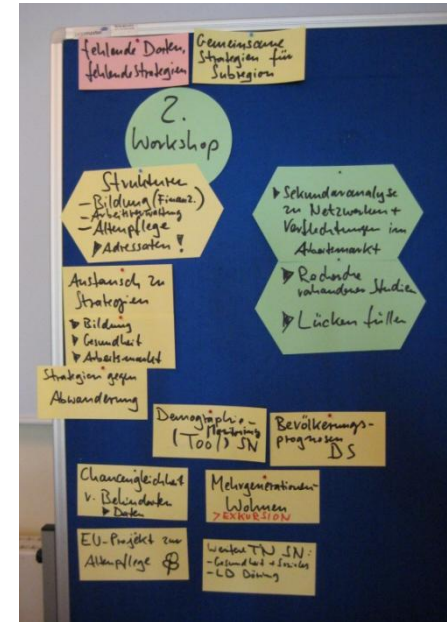 fehlende Daten,
fehlende Strategien
Gemeinsame
Strategien für
Subregion
2.
Workshop
Strukturen
- Bildung (Finanz.)
- Arbeitsverwaltung
- Altenpflege
Adressaten!
Sekundäranalyse
zu Netzwerken +
Verflechtungen im
Arbeitsmarkt
Recherche
vorhandener Studien
Lücken füllen
Austausch zu
Strategien
Bildung
Gesundheit
Arbeitsmarkt
Strategien gegen
Abwanderung
Demographie-
Monitoring
(Tool) SN
Bevölkerungs-
prognosen
DS
Chancengleichheit
v. Behinderten
Daten
Mehrgenerationen-
Wohnen
>EXKURSION
EU-Projekt zur
Altenpflege
Weitere TN SN:
- Gesundheit + Soziales
- LD